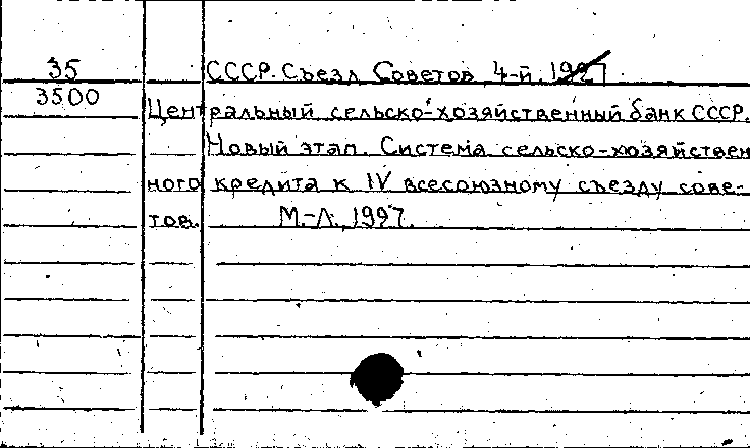 35 СССР. Съезд Советов 4-й. 1927
3500 Центральный сельско-хозяйственный банк СССР.
Новый этап. Система сельско-хозяйствен
ного кредита к IV всесоюзному съезду сове-
тов. М.-Л., 1927.